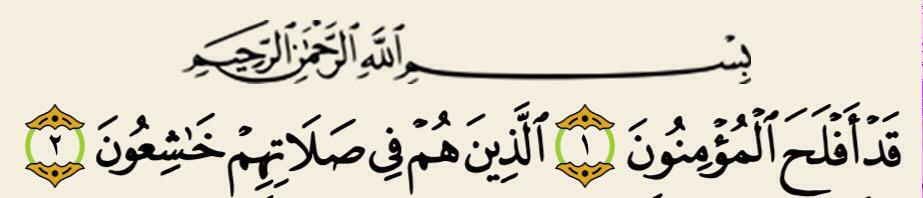 بِسْمِ ٱللَّهِ ٱلرَّحْمَٰنِ ٱلرَّحِيمِ
قَدْ أَفْلَحَ ٱلْمُؤْمِنُونَ ١ ٱلَّذِينَ هُمْ فِي صَلَاتِهِمْ خَٰشِعُونَ ٢